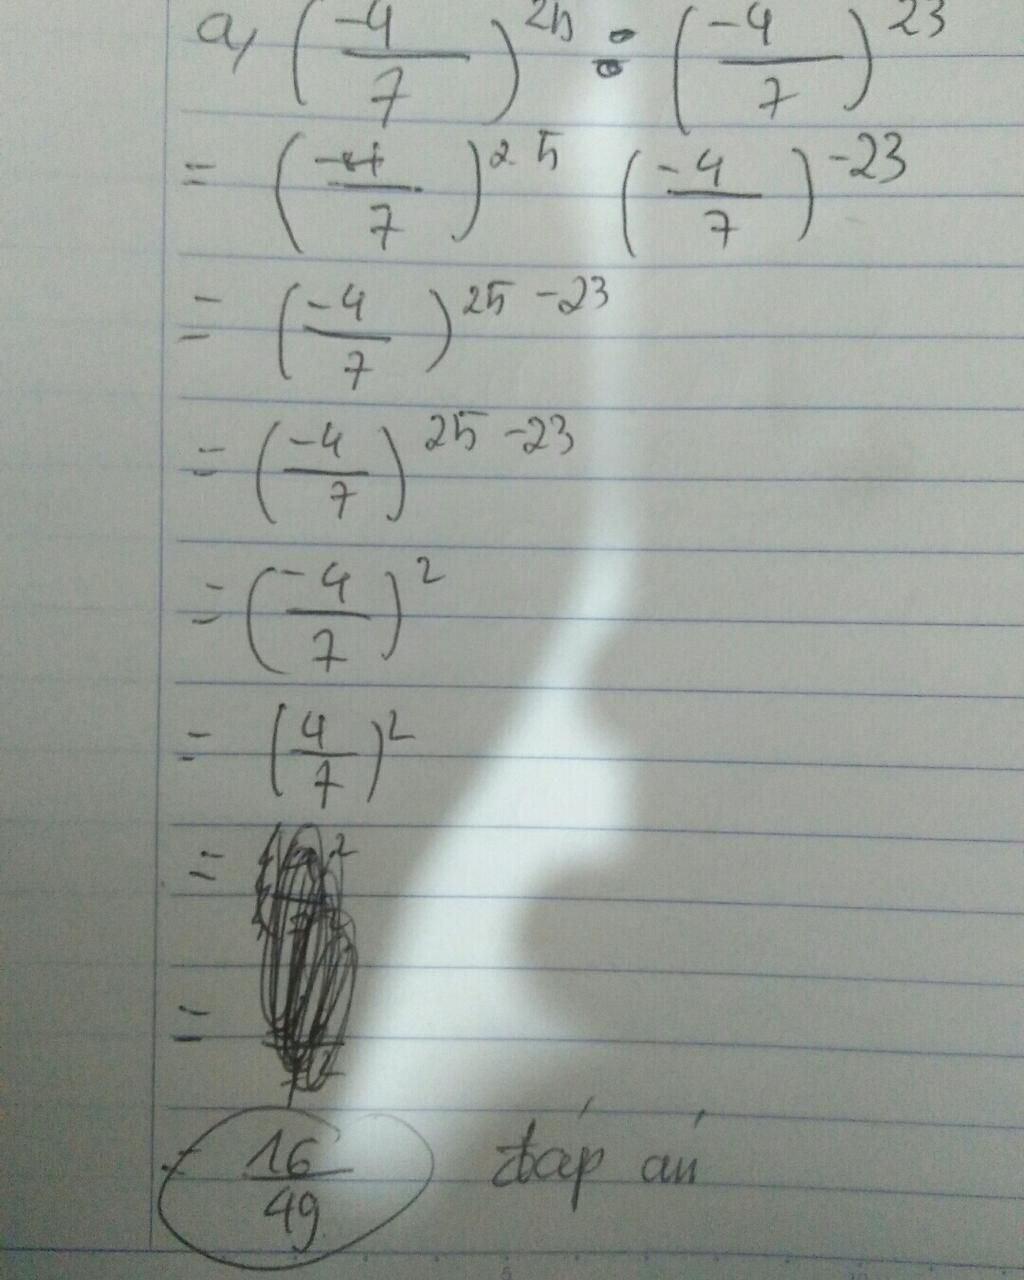 a, (-4/7)^25 : (-4/7)^23
= (-4/7)^25 (-4/7)^-23
= (-4/7)^25-23
= (-4/7)^25-23
= (-4/7)^2
= (4/7)^2
=
=
= 16/49 đáp án